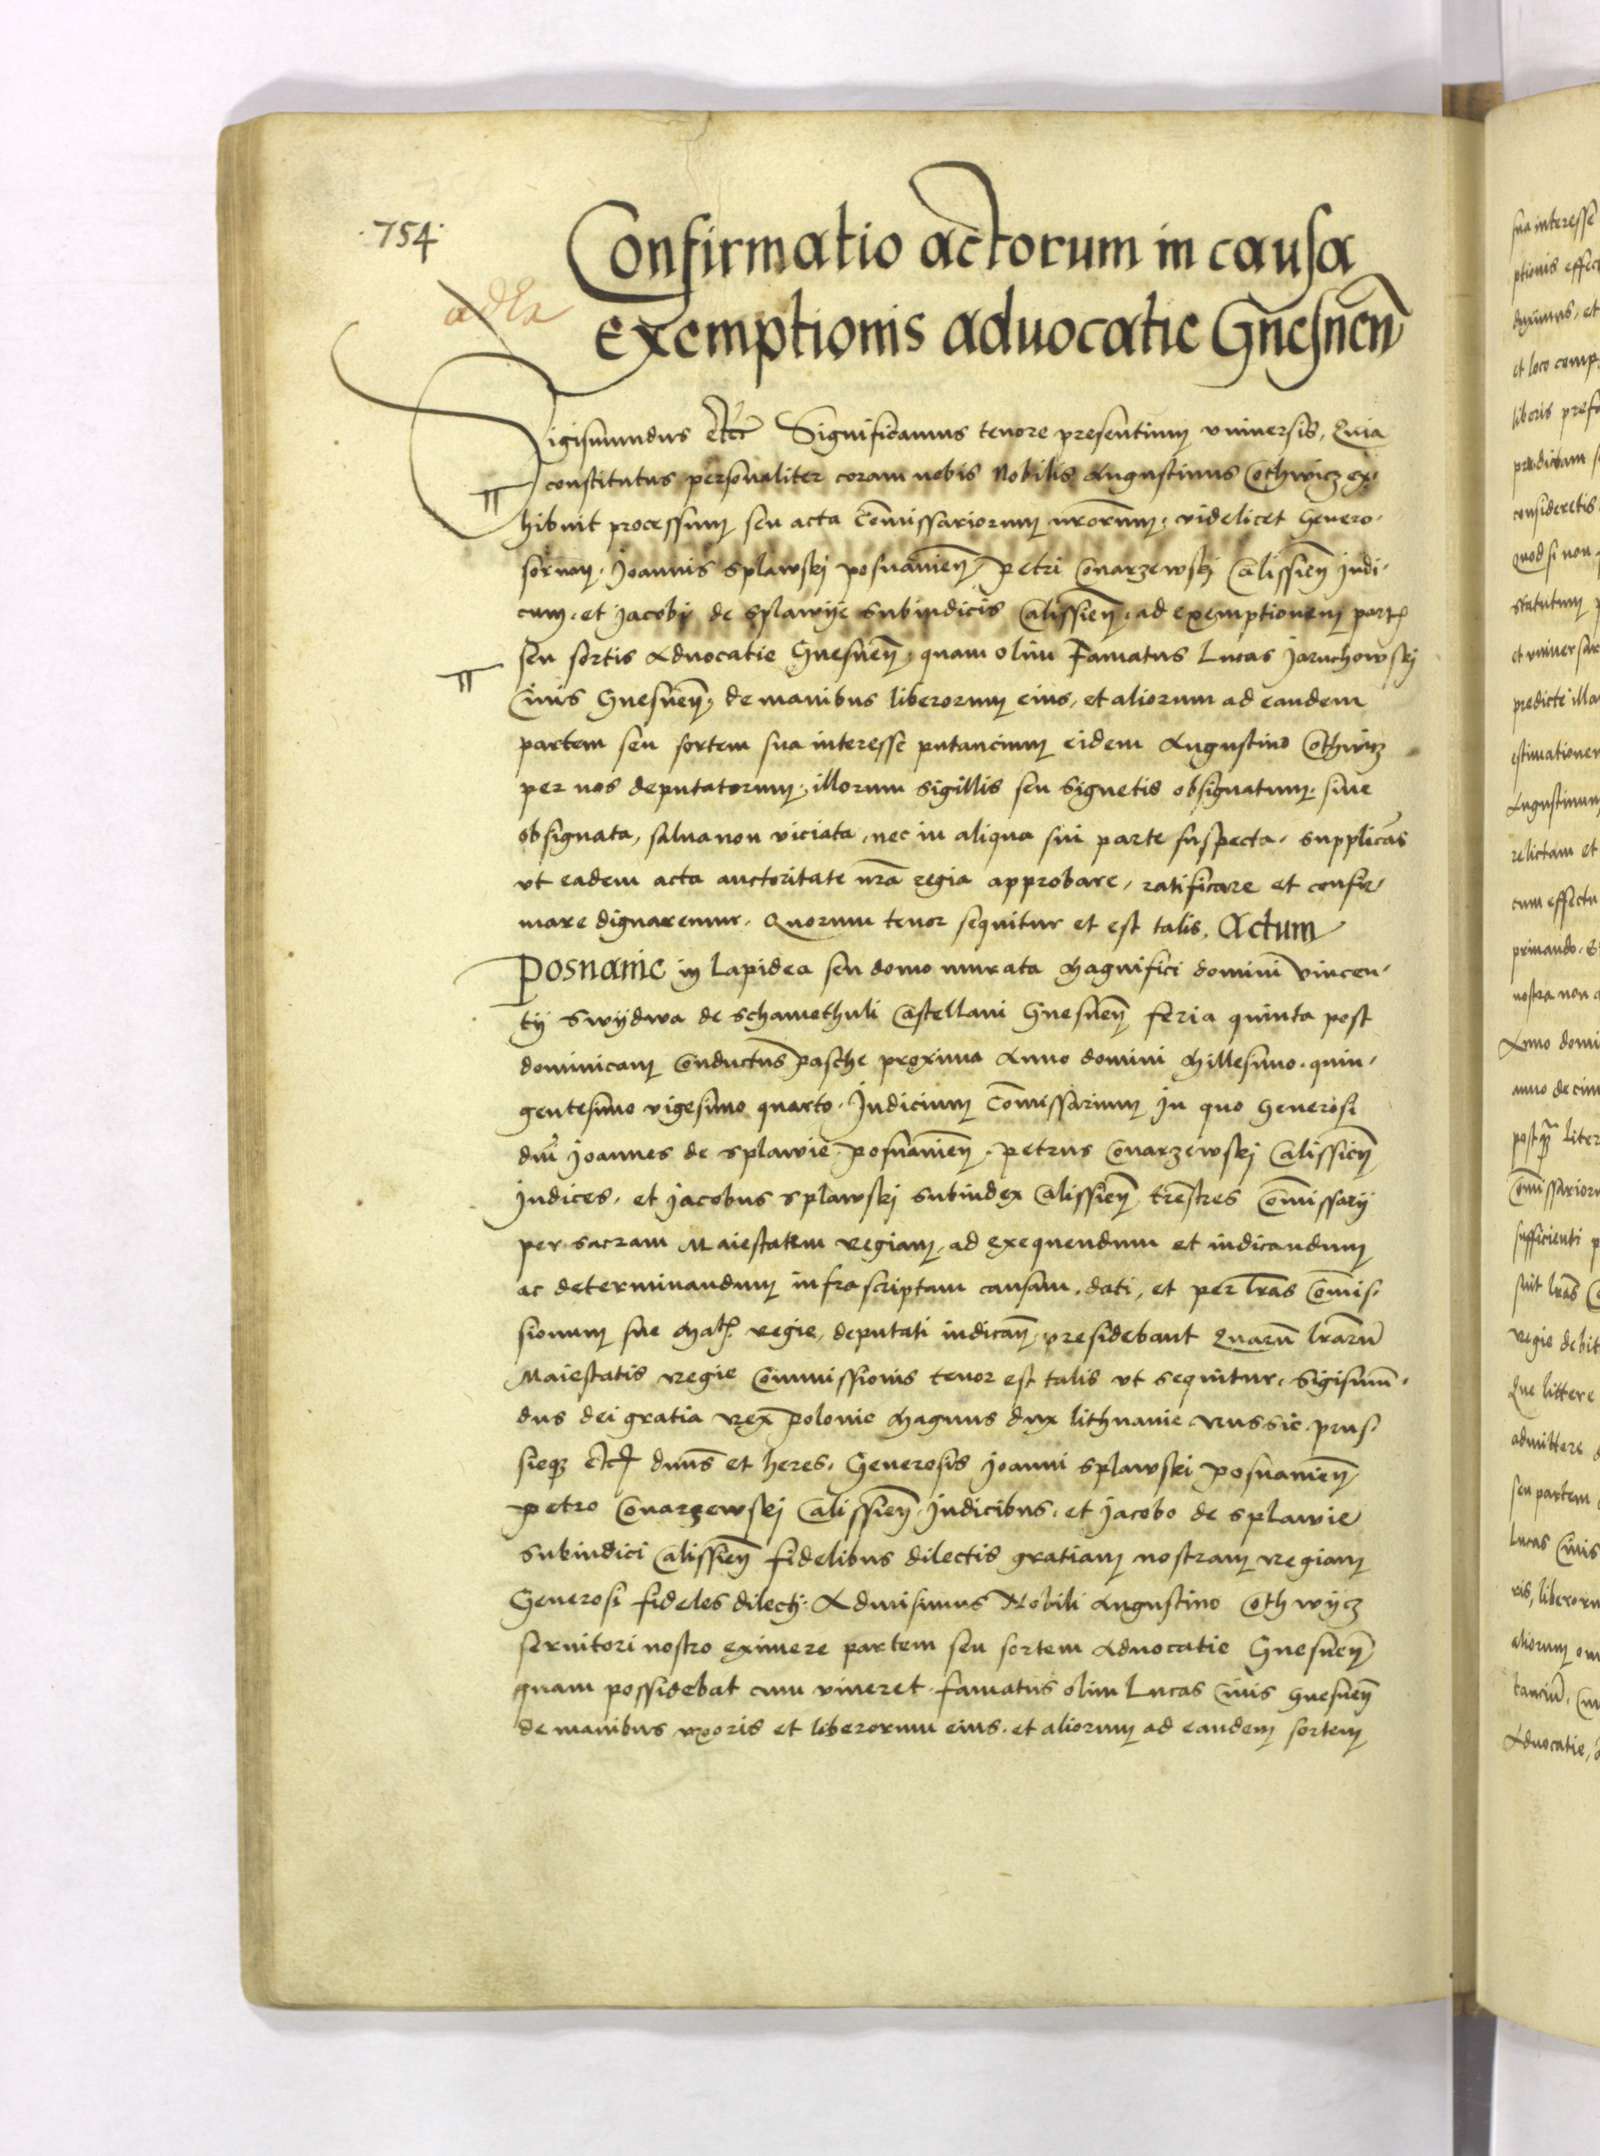 ·754·
Confirmatio actorum in causa
exemptionis aduocatie Gnesnen̄
Sigismundus etc̄ Significamus tenore presentium vniuersis, Quia
constitutus personaliter coram nobis Nobilis Augustinus Cothwicz ex-
hibuit processum seu acta Com̄issariorum nr̄orum, videlicet Genero-
sorum, Joannis Splawskj Posnanien̄, Petri Conarzewskj Calissien̄ Judi-
cum, et Jacobj de Splawije Subiudicis Calissien̄, ad exemptionem part
seu sortis Aduocatie Gnesnen̄, quam olim Famatus Lucas Jaruchowskj
Ciuis Gnesnen̄, de manibus liberorum eius, et aliorum ad eandem
partem seu sortem sua interesse putancium eidem Augustino Cothwicz
per nos deputatorum, illorum sigillis seu signetis obsignatum, siue
obsignata, salua non viciata, nec in aliqua sui parte suspecta, supplicās
vt eadem acta auctoritate nr̄a regia approbare, ratificare et confir-
mare dignaremur, Quorum tenor sequitur et est talis, Actum
Posnanie in Lapidea seu domo murata Magnifici domini Vincen-
tij Swijdwa de Schamothuli Castellani Gnesnen̄ feria quinta post
dominicam Conductus Pasche proxima Anno domini Millesimo quin-
gentesimo vigesimo quarto, Judicium Com̄issarium In quo Generosi
dn̄i Joannes de Splawie Posnanien̄, Petrus Conarzewskj Calissien̄
Judices, et Jacobus Splawskj Subiudex Calissien̄ trēstres Com̄issarij
per sacram Maiestatem Regiam, ad exequendum et iudicandum
ac determinandum infrascriptam causam, dati, et per lr̄as Com̄is-
sionum sue Mat regie, deputati iudican̄, presidebant Quarū lr̄arū
Maiestatis Regie Commissionis tenor est talis vt sequitur, Sigismun-
dus dei gratia Rex Polonie Magnus dux Lithuanie Russie Prus-
sieq etc dn̄us et heres, Generosis Joanni Splawski Posnanien̄,
Petro Conarzewskj Calissien̄ Judicibus, et Jacobo de Splawie
Subiudici Calissien̄ fidelibus dilectis gratiam nostram Regiam
Generosi fideles dilecti, Admisimus Nobili Augustino Cothwijcz
seruitori nostro eximere partem seu sortem Aduocatie Gnesnen̄,
quam possidebat cum viueret, famatus olim Lucas Ciuis Gnesnen̄
de manibus vxoris et liberorum eius, et aliorum ad eandem sortem
sua interesse
et loco comp
consideretis
Quod si non
statutum
predicte illa
estimationem
Augustinum
relictam et
cum effectu
priuando, Et
nostra non
Anno domi
Com̄issariorum
sufficienti p
Que littere
admittere
seu partem
Lucas Ciuis
ris, liberorum
aliorum om
Aduocatie,